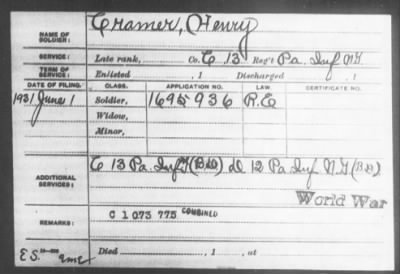 Cramer, Henry
NAME OF SOLDIER:
SERVICE: Late rank, Co. C 13 Reg't Pa. Inf NG
TERM OF SERVICE: Enlisted , 1 Discharged , 1
DATE OF FILING. CLASS. APPLICATION NO. LAW. CERTIFICATE NO.
1931 June 1 Soldier, 1695936 R.E
Widow,
Minor,
C 13 Pa. Inf D 12 Pa. Inf N.G
ADDITIONAL SERVICES:
World War
REMARKS: C 1 073 775 COMBINED
E.S.
Died , 1 , at